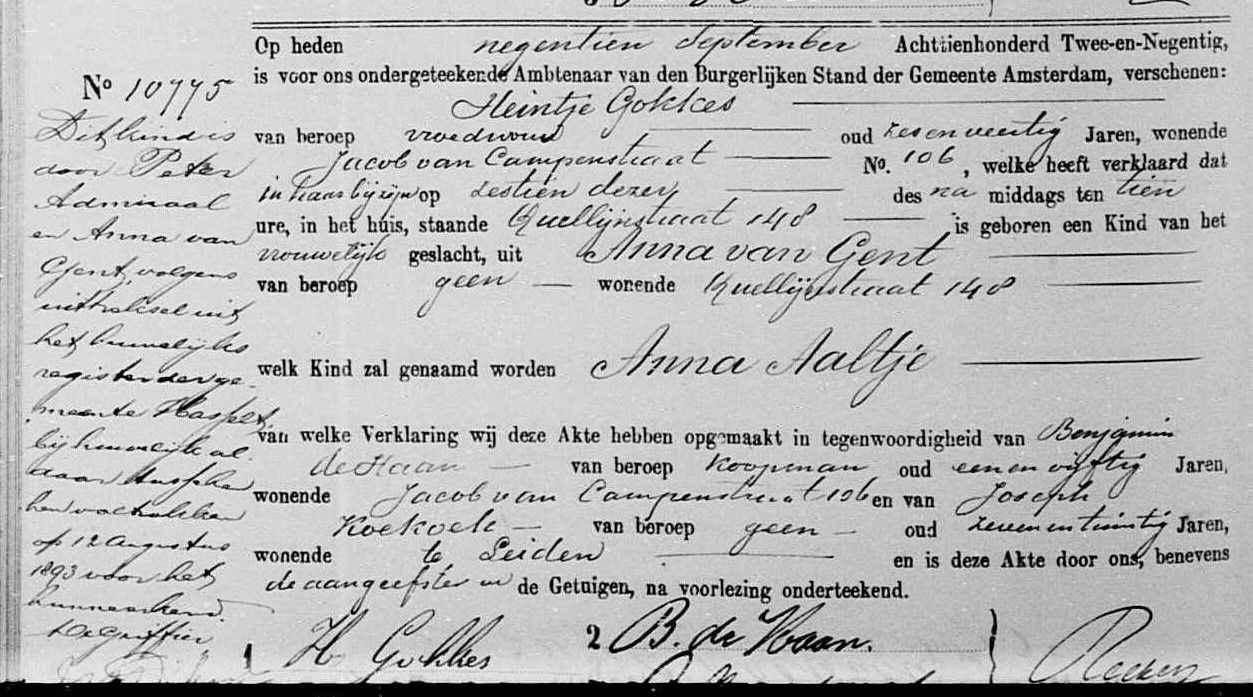 Op heden negentien September Achttienhonderd Twee-en-Negentig,
is voor ons ondergeteekende Ambtenaar van den Burgerlijken Stand der Gemeente Amsterdam, verschenen:
Heintje Gokkes
van beroep vroedvrouw oud zes en veertig Jaren, wonende
Jacob van Campenstraat No. 106, welke heeft verklaard dat
in haar bijzijn op zestien dezer, des na middags ten tien
ure, in het huis, staande Quellijnstraat 148 is geboren een Kind van het
vrouwelijk geslacht, uit Anna van Gent
van beroep geen wonende Quellijnstraat 148
welk Kind zal genaamd worden Anna Aaltje
van welke Verklaring wij deze Akte hebben opgemaakt in tegenwoordigheid van Benjamin
de Haan van beroep Koopman oud een en vijftig Jaren,
wonende Jacob van Campenstraat 106 en van Joseph
Koekoek van beroep geen oud zeven en twintig Jaren,
wonende te Leiden en is deze Akte door ons, benevens
de aangeefster en de Getuigen, na voorlezing onderteekend.
1 H Gokkes 2 B. de Haan.
No 10775
Dit kind is
door Peter
Admiraal
en Anna van
Gent, volgens
uittreksel uit
het huwelijks
register der ge-
meente Hasselt,
bij huwelijk al-
daar tusschen
hen voltrokken
op 12 Augustus
1893 voor het
hunne erkend.
De Griffier